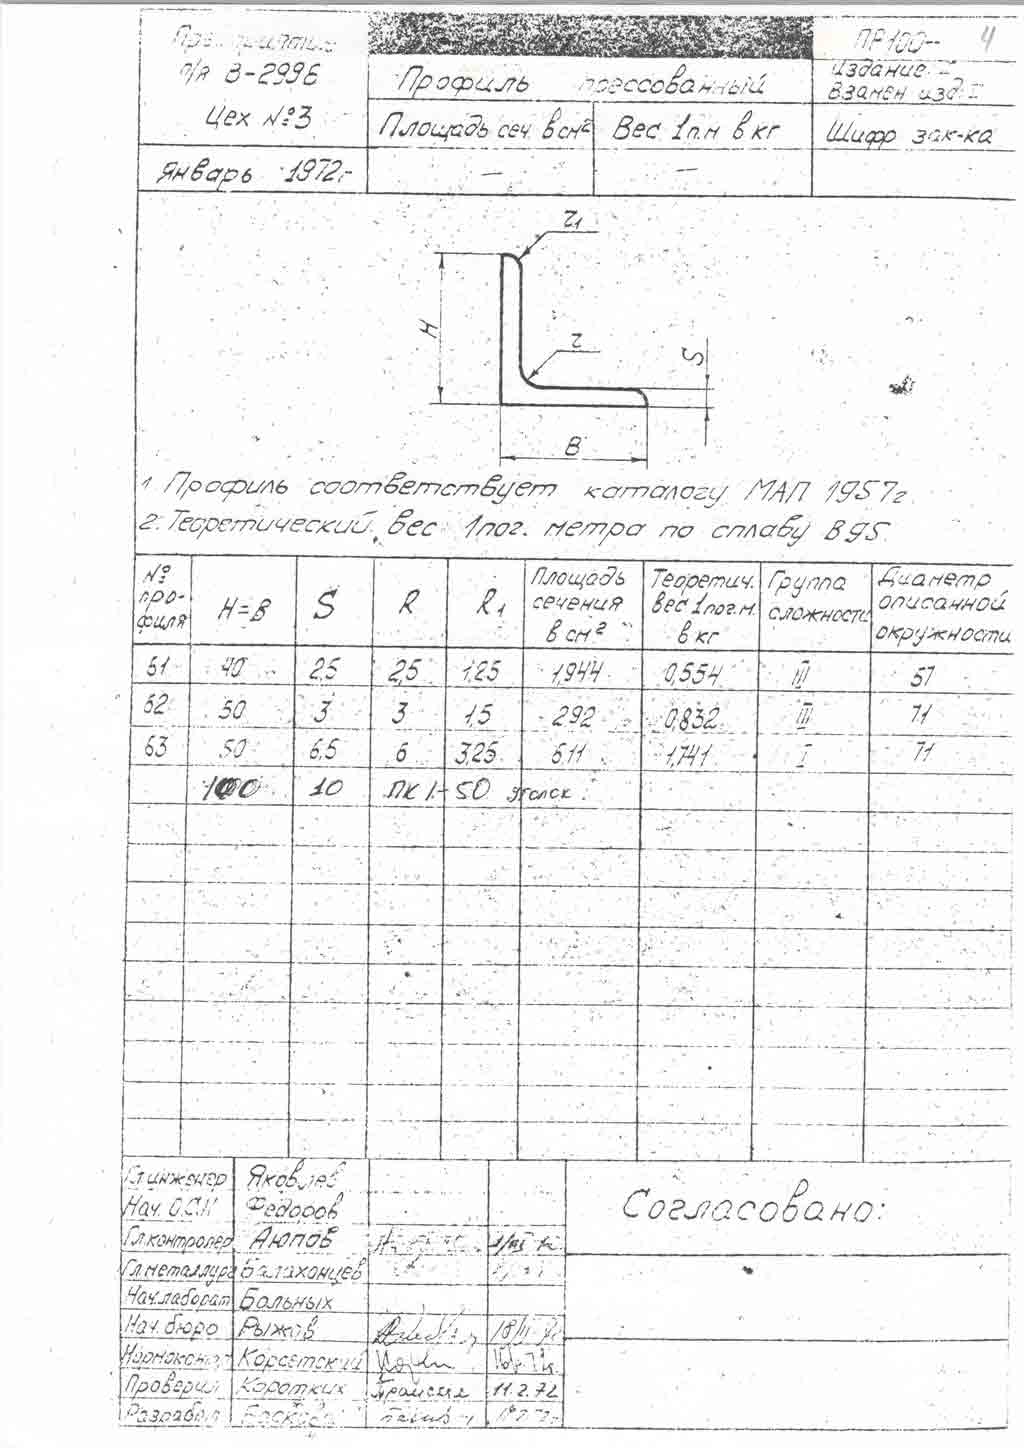 Предприятие
п/я В-2996
Цех №3
Январь 1972г.
Профиль прессованный
Площадь сеч. в см² Вес 1 п.м в кг
— —
ПР100- 4
издание II
взамен изд. I
Шифр зак-ка
r1
H
r
S
B
1. Профиль соответствует каталогу МАП 1957г.
2. Теоретический вес 1 пог. метра по сплаву В95.
№ профиля H=B S R R1 Площадь сечения в см² Теоретич. вес 1 пог.м. в кг Группа сложности Диаметр описанной окружности
51 40 2,5 2,5 1,25 1,944 0,554 III 57
52 50 3 3 1,5 292 0,832 III 71
53 50 6,5 6 3,25 6,11 1,741 I 71
100 10 ПК 1-50 уголок
Гл инженер Яковлев
Нач. О.С.К Федоров
Гл.контролер Аюпов
Гл.металлург Балахонцев
Нач.лаборат Больных
Нач. бюро Рыжов
Нормоконт. Корсетский
Проверил Коротких 11.2.72
Разработ
Согласовано: